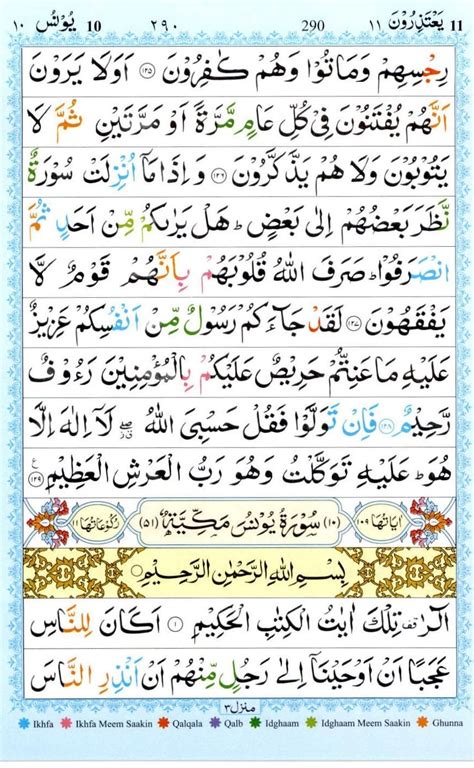 ١٠ يُوْنُس 10 ٢٩٠ 290 يَعْتَذِرُوْنَ ١١ 11
رِجْسِهِمْ وَمَاتُوْا وَهُمْ كٰفِرُوْنَ ﴿۱۲۵﴾ اَوَلَا يَرَوْنَ
اَنَّهُمْ يُفْتَنُوْنَ فِىْ كُلِّ عَامٍ مَّرَّةً اَوْ مَرَّتَيْنِ ثُمَّ لَا
يَتُوْبُوْنَ وَلَا هُمْ يَذَّكَّرُوْنَ ﴿۱۲۶﴾ وَاِذَا مَاۤ اُنْزِلَتْ سُوْرَةٌ
نَّظَرَ بَعْضُهُمْ اِلٰى بَعْضٍ ؕ هَلْ يَرٰىكُمْ مِّنْ اَحَدٍ ثُمَّ
انْصَرَفُوْا ؕ صَرَفَ اللّٰهُ قُلُوْبَهُمْ بِاَنَّهُمْ قَوْمٌ لَّا
يَفْقَهُوْنَ ﴿۱۲۷﴾ لَقَدْ جَآءَكُمْ رَسُوْلٌ مِّنْ اَنْفُسِكُمْ عَزِيْزٌ
عَلَيْهِ مَا عَنِتُّمْ حَرِيْصٌ عَلَيْكُمْ بِالْمُؤْمِنِيْنَ رَءُوْفٌ
رَّحِيْمٌ ﴿۱۲۸﴾ فَاِنْ تَوَلَّوْا فَقُلْ حَسْبِىَ اللّٰهُ ۖ لَاۤ اِلٰهَ اِلَّا
هُوَ ؕ عَلَيْهِ تَوَكَّلْتُ وَهُوَ رَبُّ الْعَرْشِ الْعَظِيْمِ ﴿۱۲۹﴾
اٰيَاتُهَا ١٠٩ (١٠) سُوْرَةُ يُوْنُسَ مَكِّيَّةٌ (٥١) رُكُوْعَاتُهَا ١١
بِسْمِ اللّٰهِ الرَّحْمٰنِ الرَّحِيْمِ
الٓرٰ ۚ تِلْكَ اٰيٰتُ الْكِتٰبِ الْحَكِيْمِ ﴿۱﴾ اَكَانَ لِلنَّاسِ
عَجَبًا اَنْ اَوْحَيْنَاۤ اِلٰى رَجُلٍ مِّنْهُمْ اَنْ اَنْذِرِ النَّاسَ
منزل ٣
Ikhfa Ikhfa Meem Saakin Qalqala Qalb Idghaam Idghaam Meem Saakin Ghunna